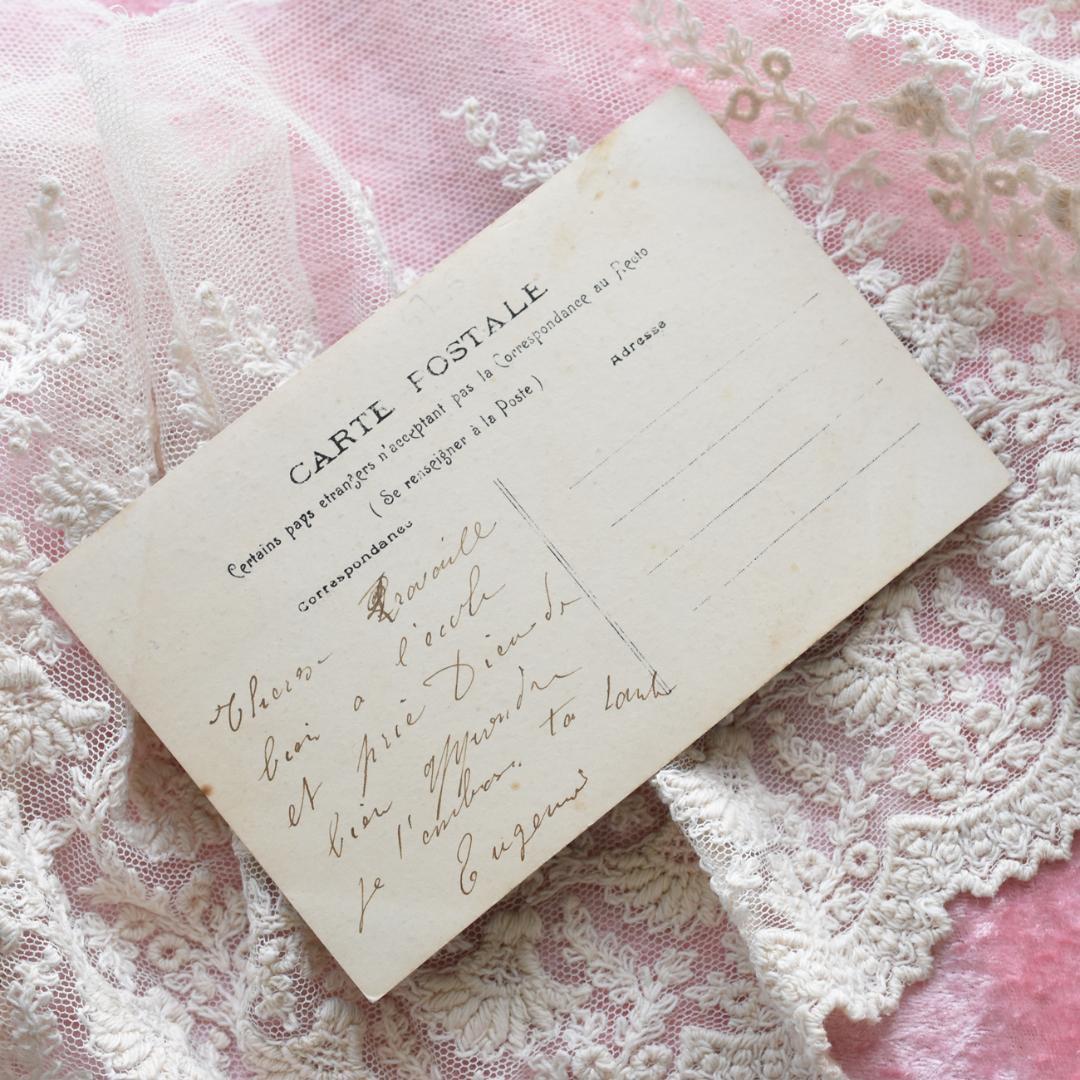 CARTE POSTALE
Certains pays etrangers n'acceptant pas la Correspondance au Recto
(Se renseigner à la Poste)
Correspondance
Adresse
Travaille
bien a l'ecole
et prie Dieu de
bien apprendre
je t'embrasse ta tante
Eugenie